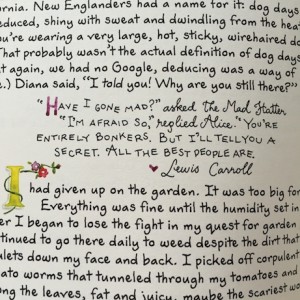 ornia. New Englanders had a name for it: dog days
educed, shiny with sweat and dwindling from the hea
ou're wearing a very large, hot, sticky, wirehaired do
That probably wasn't the actual definition of dog days
t again, we had no Google, deducing was a way of
e.) Diana said, "I told you! Why are you still there?"
"HAVE I GONE MAD?" asked the Mad Hatter.
"I'M AFRAID SO," replied Alice. "YOU'RE
ENTIRELY BONKERS. BUT I'LL TELL YOU A
SECRET. ALL THE BEST PEOPLE ARE.
Lewis Carroll
I had given up on the garden. It was too big for
Everything was fine until the humidity set in
er I began to lose the fight in my quest for garden
tinued to go there daily to weed despite the dirt that
ulets down my face and back. I picked off corpulent
ato worms that tunneled through my tomatoes and
ong the leaves, fat and juicy, maybe the scariest wo